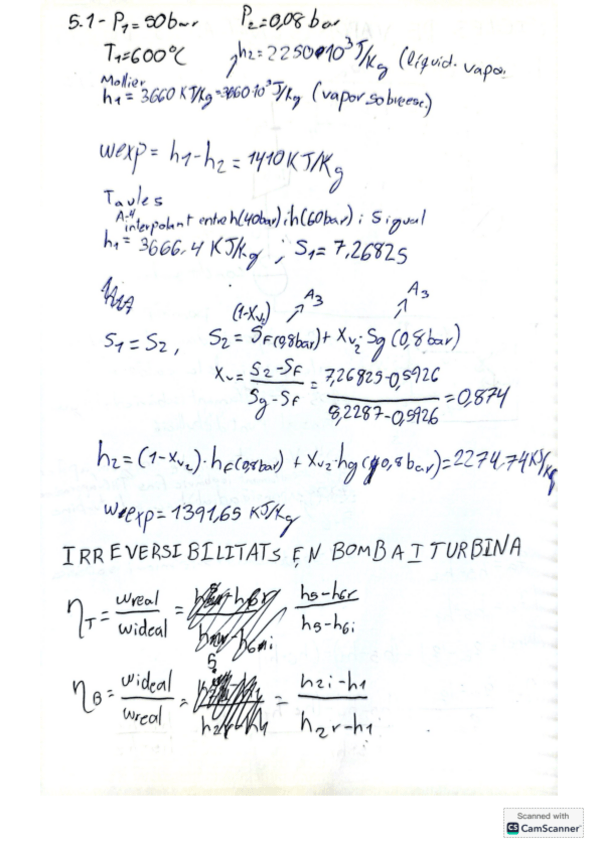 5.1- P₁=50bar P₂=0,08bar
T₁=600°C h₂=2250·10³J/Kg (líquid. vapor
Mollier
h₁=3660KJ/Kg=3660·10³J/Kg (vapor sobreesc.)
wexp=h₁-h₂=1410KJ/Kg
Taules
A-4
interpolant entre h(40bar) i h(60bar) i S igual
h₁=3666.4 KJ/Kg ; S₁=7,26825
(1-Xv₂) A3 A3
S₁=S₂, S₂=SF(0,8bar)+Xv₂·Sg(0,8bar)
Xv=(S₂-SF)/(Sg-SF)=(7,26825-0,5926)/(8,2287-0,5926)=0,874
h₂=(1-Xv₂)·hF(0,8bar)+Xv₂·hg(0,8bar)=2274.74KJ/Kg
wexp=1391,65 KJ/Kg
IRREVERSIBILITATS EN BOMBA I TURBINA
ηT=wreal/wideal= = (h5-h6r)/(h5-h6i)
ηB=wideal/wreal= = (h2i-h1)/(h2r-h1)
Scanned with
CS CamScanner